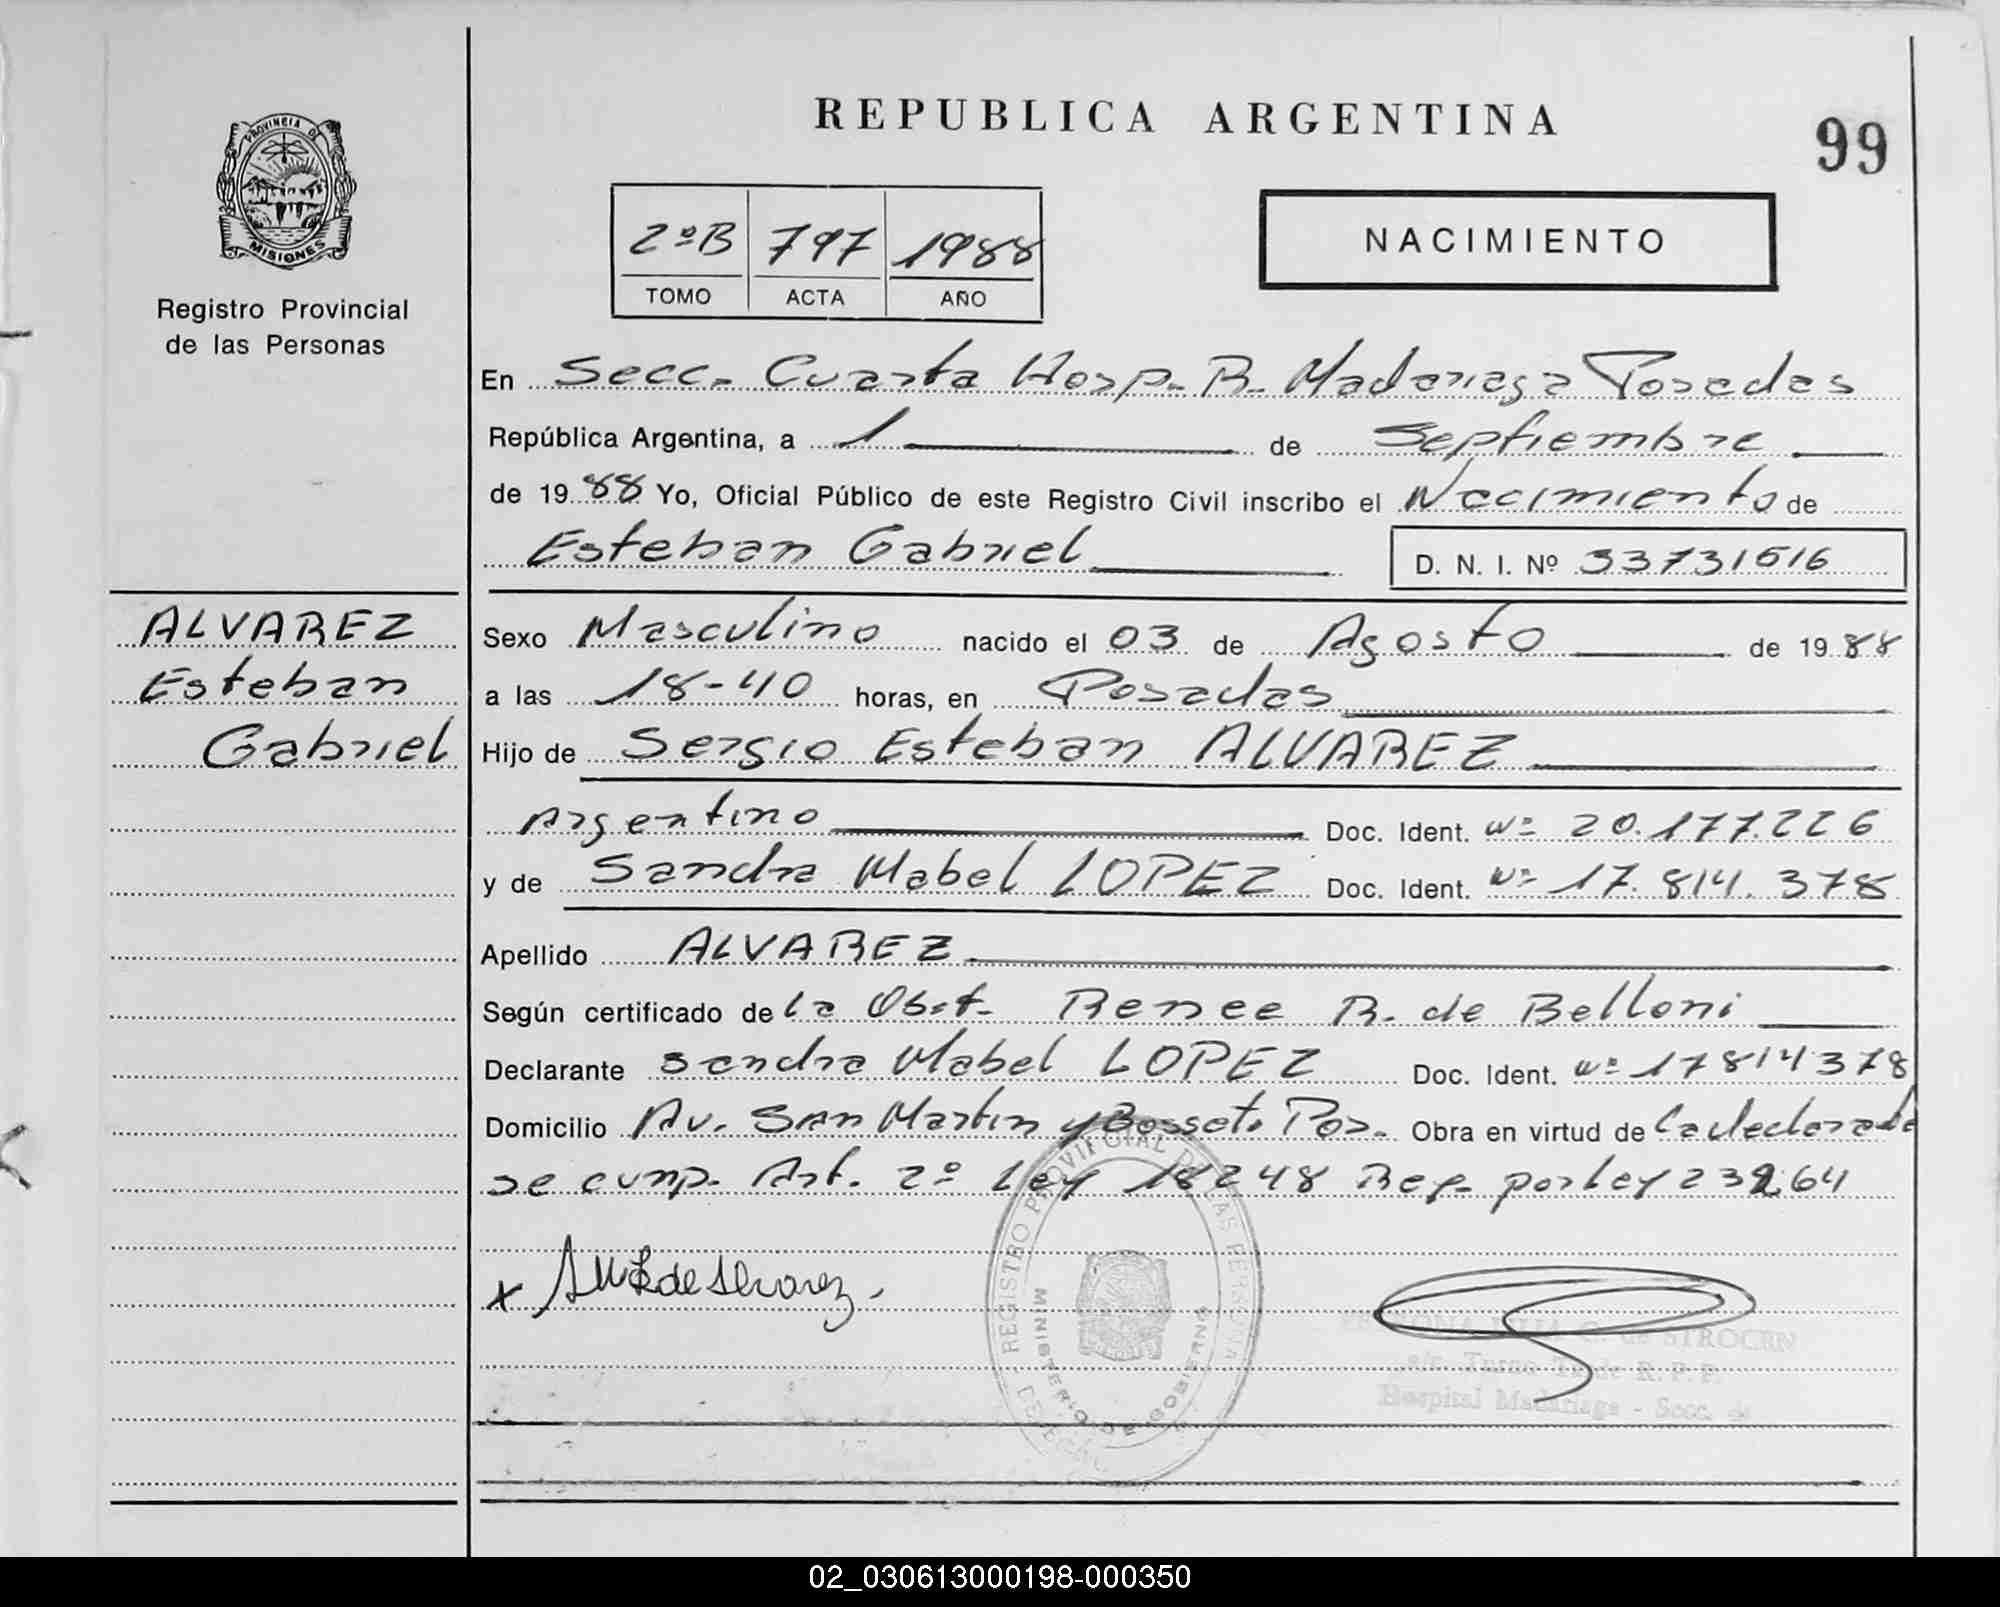 REPUBLICA ARGENTINA
99
PROVINCIA DE
MISIONES
Registro Provincial
de las Personas
2ºB 797 1988
TOMO ACTA AÑO
NACIMIENTO
En Secc. Cuarta Hosp. R. Madariaga Posadas
República Argentina, a 1 de Septiembre
de 1988 Yo, Oficial Público de este Registro Civil inscribo el Nacimiento de
Esteban Gabriel D. N. I. Nº 33731616
ALVAREZ
Esteban
Gabriel
Sexo Masculino nacido el 03 de Agosto de 1988
a las 18-40 horas, en Posadas
Hijo de Sergio Esteban ALVAREZ
Argentino Doc. Ident. Nº 20.177.226
y de Sandra Mabel LOPEZ Doc. Ident. Nº 17.814.378
Apellido ALVAREZ
Según certificado de la Obst. Renee R. de Belloni
Declarante Sandra Mabel LOPEZ Doc. Ident. Nº 17814378
Domicilio Av. San Martin y Bosset. Pos. Obra en virtud de La declarada
se cump. Art. 2º Ley 18248 Rep. por Ley 23264
x SMLde Alvarez.
REGISTRO PROVINCIAL DE LAS PERSONAS
MINISTERIO DE GOBIERNO
LILIA G. de STROCEN
a/c. Turno de R. P. P.
Hospital Madariaga - Secc. 4
02_030613000198-000350